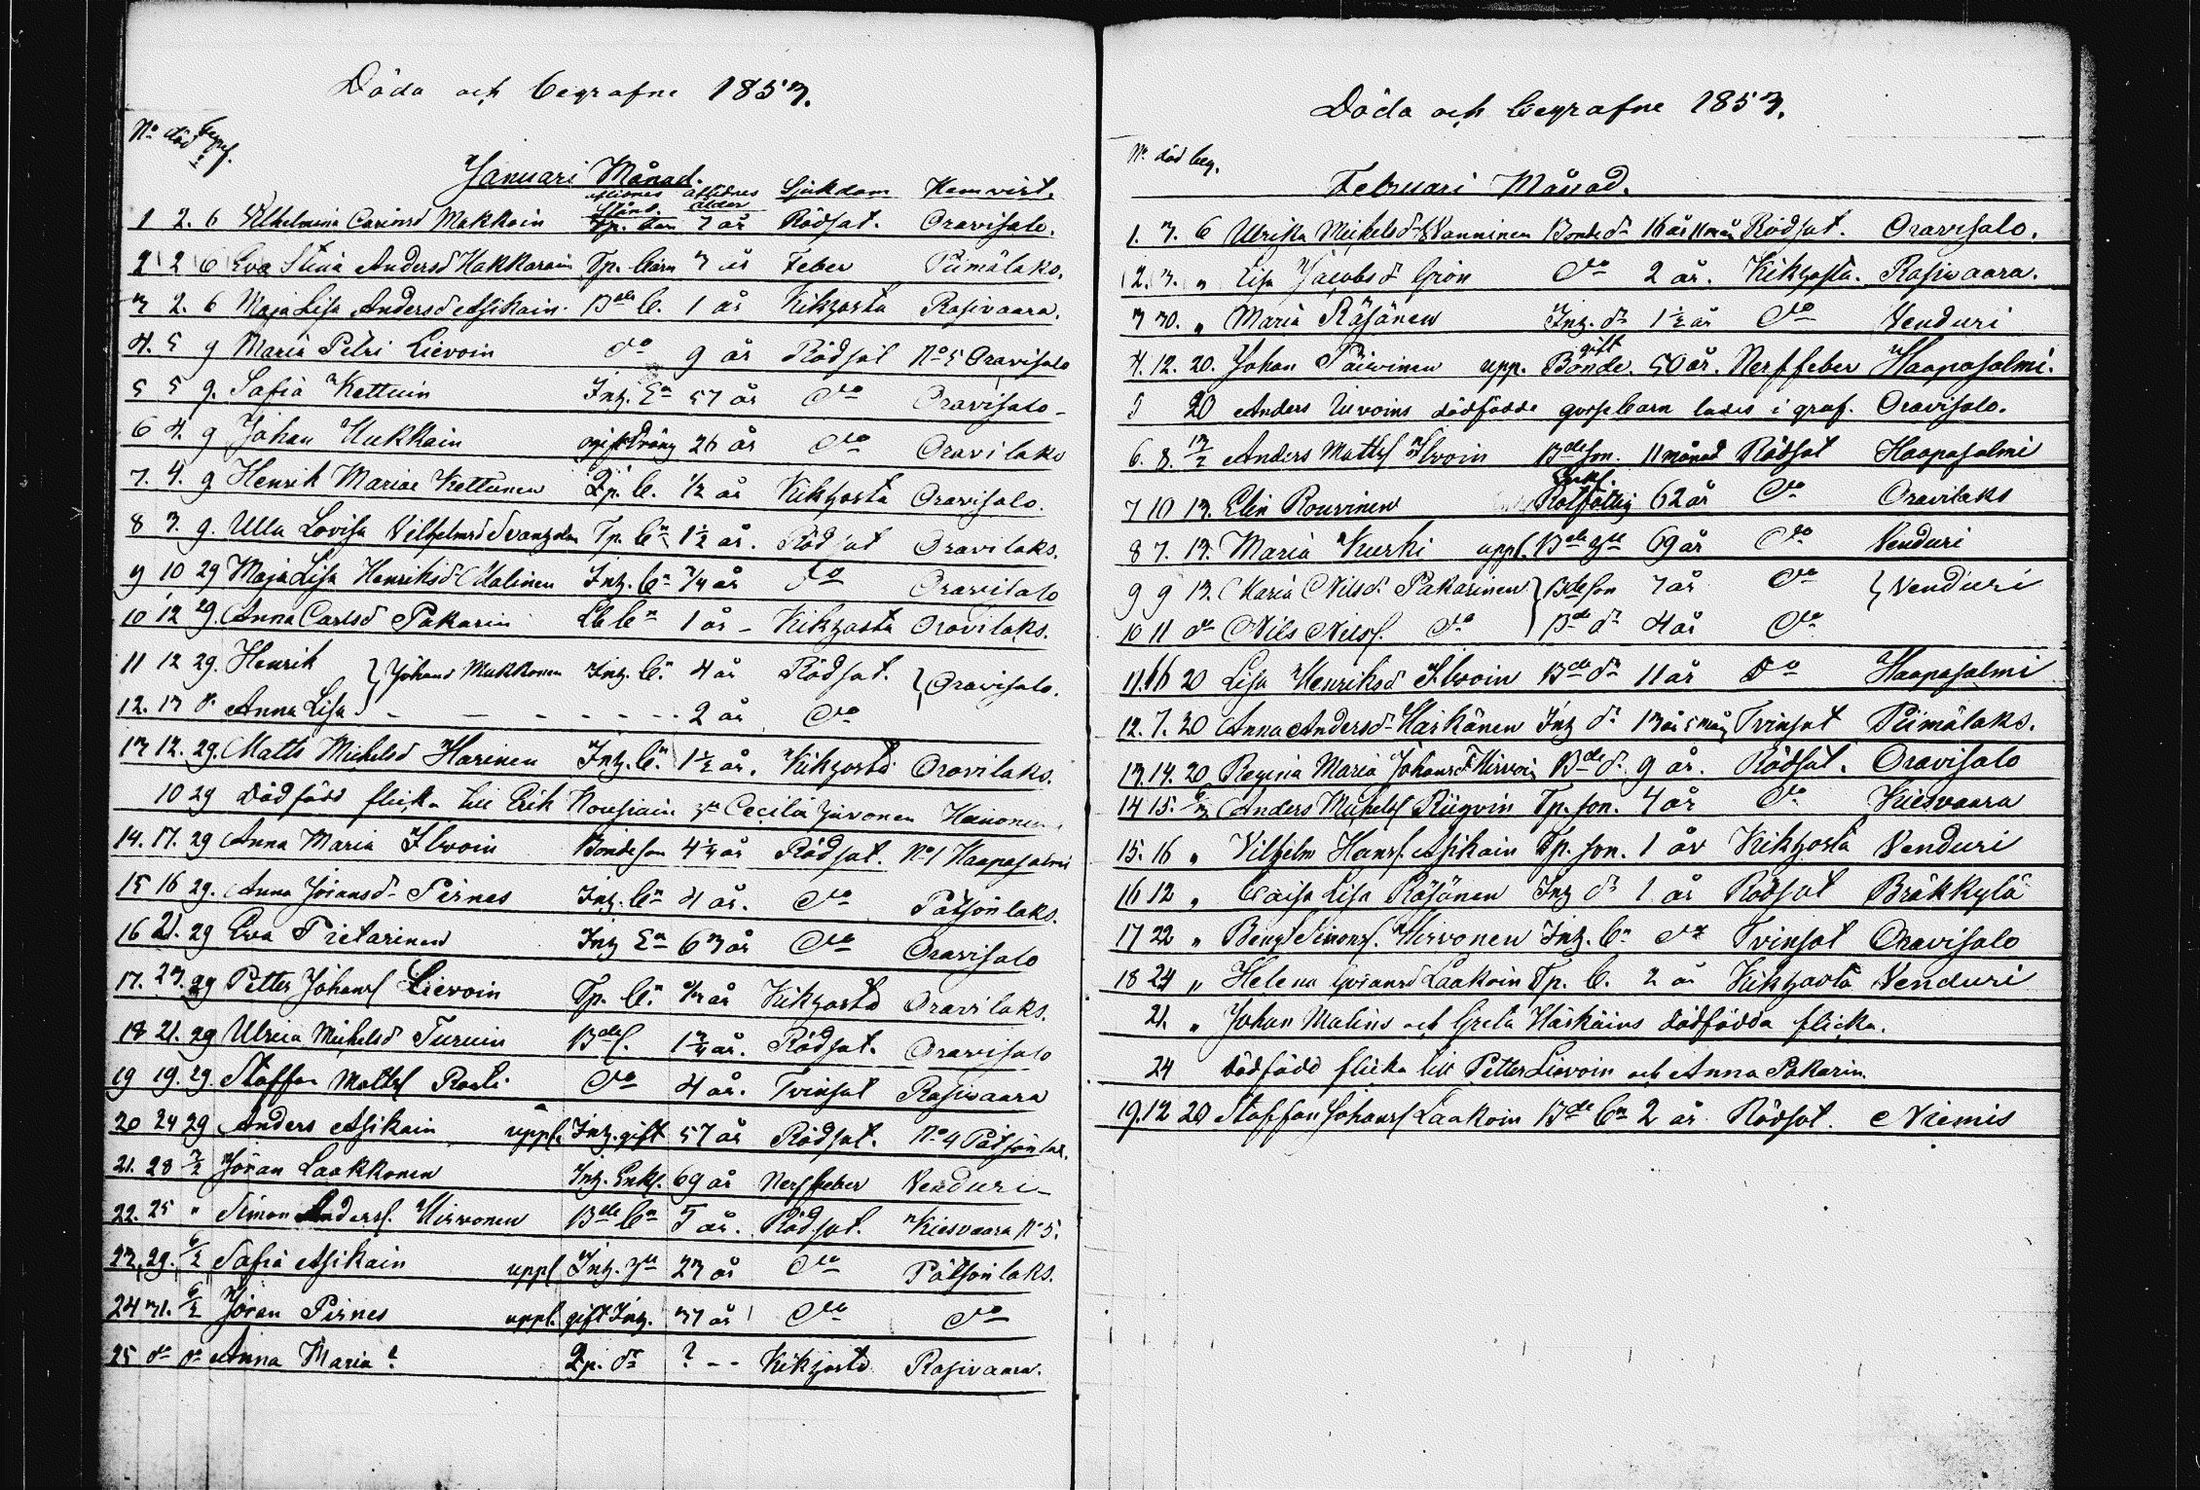 Döda och begrafne 1853.
No död begrf.
Januari Månad.
aflidnes Stånd. aflidnes ålder Sjukdom Hemvist.
1 2. 6 Vilhelmina Carinsd Makkoin Tp. barn 7 år Rödsot. Oravisalo.
2 2 6 Eva Stina Andersd Hakkarain Tp. barn 3 år Feber Piimälaks.
3 2. 6 Maja Lisa Andersd Asikain. Bde b. 1 år Kikhosta Rasivaara.
4. 5 9 Maria Petri Lievoin do 9 år Rödsot No 5 Oravisalo
5 5 9. Safia Kettuin Inh. En 57 år do Oravisalo
6 4. 9 Johan Mukkain ogift dräng 26 år do Oravilaks
7. 4. 9 Henrik Mariae Kettunen Lp. b. 1/2 år Kikhosta Oravisalo.
8 3. 9. Ulla Lovisa Vilhelmsd Tp. bn 1 1/2 år. Rödsot Oravilaks.
9 10 29 Maja Lisa Henriksd Malinen Inh. bn 3/4 år do Oravisalo
10 12 29. Anna Carlsd Pakarin bn 1 år Kikhosta Oravilaks.
11 12 29. Henrik } Johans Mukkonen Inh. bn. 4 år Rödsot. } Oravisalo.
12. 13 do Anna Lisa } - - - - - 2 år do
13 12. 29. Matts Michelsd Harinen Inh. bn. 1 1/2 år. Kikhosta Oravilaks.
10 29 dödfödd flicka till Erik Nousiain Cecilia Juvonen Heinonen.
14. 17. 29 Anna Maria Ilvoin Bondeson 4 1/4 år Rödsot. No 1 Haapasalmi
15 16 29. Anna Jöransd Pirnes Inh. bn 4 år. do Pötsönlaks.
16 21. 29 Eva Pietarinen Inh En 63 år do Oravisalo
17. 23. 29 Petter Johans Lievoin Tp. bn. år Kikhosta Oravilaks.
18 21. 29 Ulrica Michelsd Turuin Bde 1 3/4 år. Rödsot. Oravisalo
19 19. 29. Staffan Matts Rosti do 4 år. Tvinsot Rasivaara
20 24 29 Anders Asikain uppl. Inh. gift 57 år Rödsot. No 4 Pötsönlak.
21. 28 3/2 Jöran Laakkonen Inh. Enkl. 69 år Nerffeber Venduri
22. 25 " Simon Anders. Hirvonen Bde bn 5 år. Rödsot. Kiesvaara No 5.
23. 29. 6/2 Safia Asikain uppl Inh. 23 år do Pötsönlaks.
24 31. 6/2 Jöran Pirnes uppl. gift Inh. 37 år do do
25 do do Anna Maria? Lp. dr ? - - Kikhosta Rasivaara.
Döda och begrafne 1853.
No död beg.
Februari Månad.
1. 3. 6 Ulrika Michelsd Vanninen Bonde dr 16 år 11 mån Rödsot. Oravisalo.
2. 3. " Lisa Jacobsd Grön do 2 år. Kikhosta. Rasivaara.
3 30. " Maria Räsänen Inh. dr 1 1/2 år do Venduri
4. 12. 20. Johan Päivinen upp. gift Bonde. 50 år. Nerffeber Haapasalmi.
5 20 Anders Lievoins dödfödde gossebarn lades i graf. Oravisalo.
6. 8. 13/2 Anders Matts Ilvoin Bde son. 11 månad Rödsot Haapasalmi
7 10 13. Elin Rouvinen Enkl. Rotfattig 62 år do Oravilaks
8 7. 13. Maria Kurki uppl. Bde 69 år do Venduri
9 9 13. Maria Nilsd. Pakarinen } Bde son 7 år do } Venduri
10 11 do Nils Nilss. do } Bde dr 4 år do
11. 16 20 Lisa Henriksd Ilvoin Bde dr 11 år do Haapasalmi
12. 7. 20 Anna Andersd Härkänen Inh dr 13 år 5 mån Tvinsot Piimälaks.
13. 14. 20 Regina Maria Johansd Hirvoin Bde dr. 9 år. Rödsot. Oravisalo
14 15. 6/3 Anders Michels Tp. son. 4 år do Kiesvaara
15. 16 " Vilhelm Hans. Asikain Tp. son. 1 år Kikhosta Venduri
16 12 " Caisa Lisa Räsänen Inh dr 1 år Rödsot Bräkkylä
17 22 " Bengt Simons. Hirvonen Inh. bn do Tvinsot Oravisalo
18 24 " Helena Göransd Laakoin Tp. b. 2 år Kikhosta Venduri
21. " Johan Malins och Greta Härkäins dödfödda flicka.
24 dödfödd flicka till Petter Lievoin och Anna Pakarin.
19. 12 20 Staffan Johans Laakoin Bde bn 2 år Rödsot. Niemis